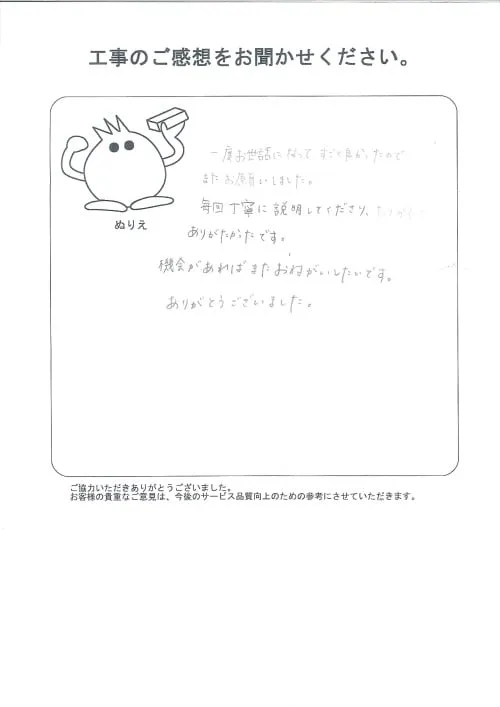 工事のご感想をお聞かせください。
ぬりえ
一度お世話になって すごく良かったので
またお願いしました。
毎回丁寧に説明してくださり、
ありがたかったです。
機会があればまたおねがいしたいです。
ありがとうございました。
ご協力いただきありがとうございました。
お客様の貴重なご意見は、今後のサービス品質向上のための参考にさせていただきます。